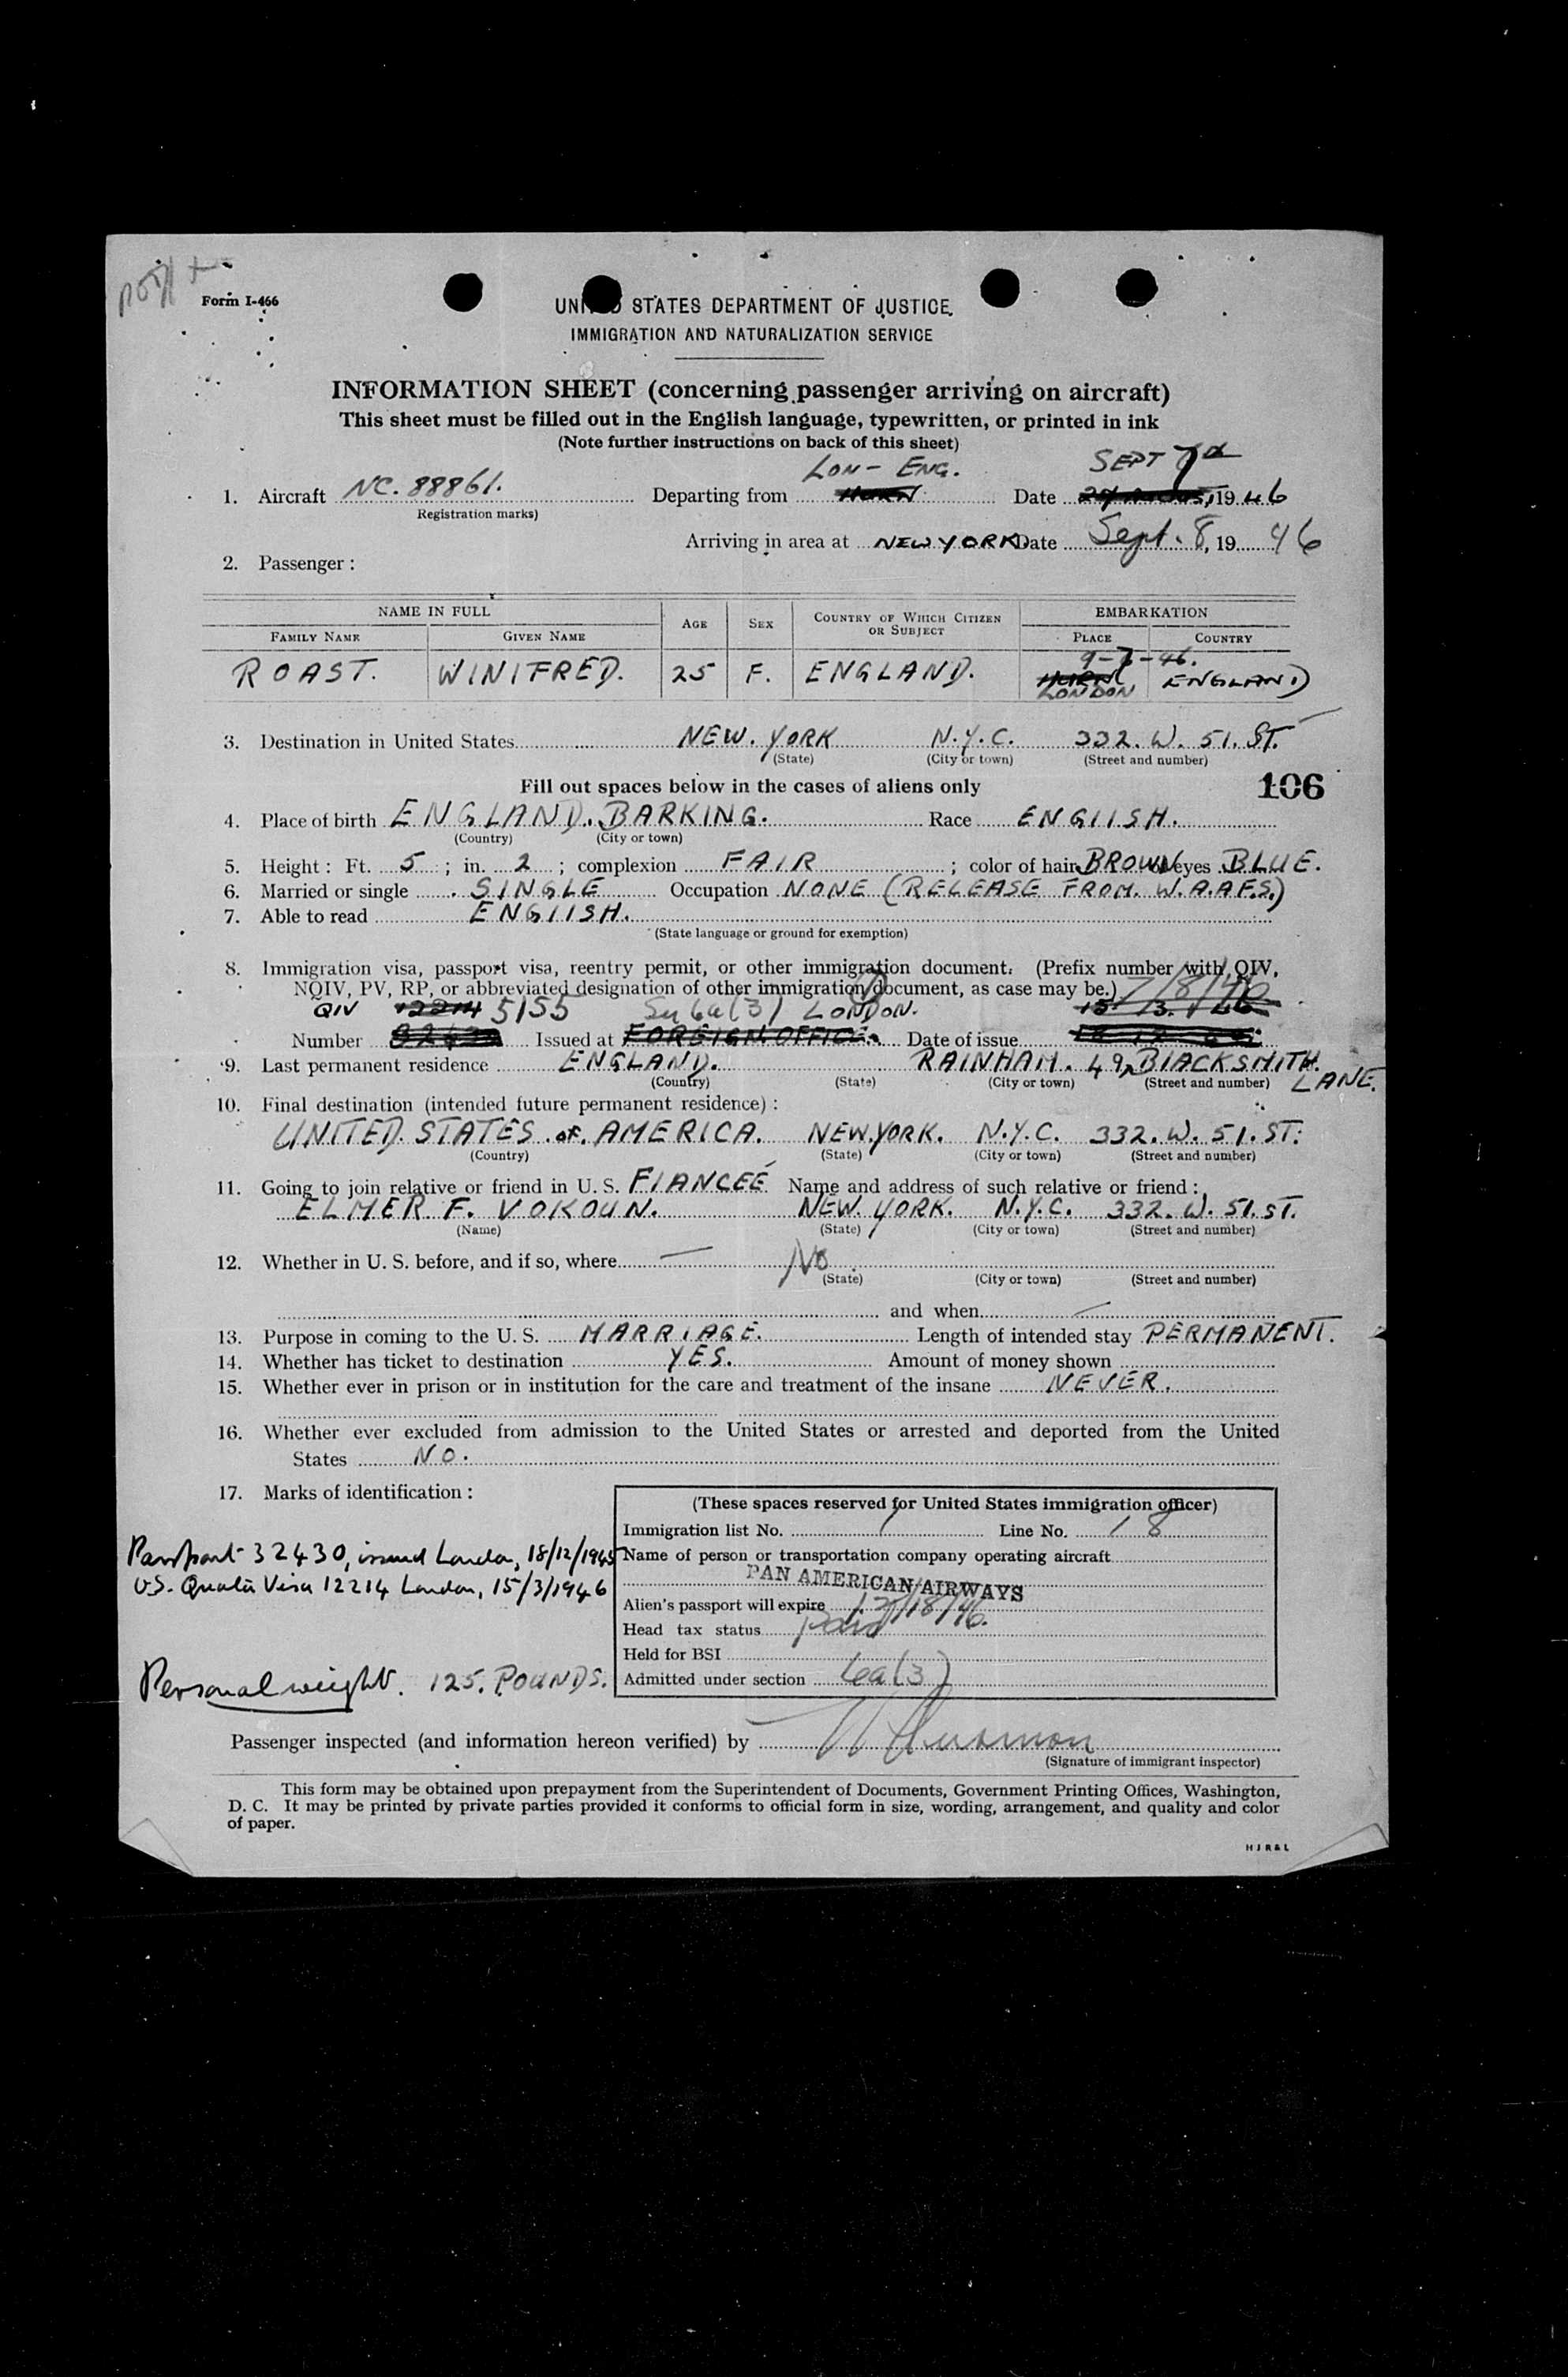 Form I-466
UNITED STATES DEPARTMENT OF JUSTICE
IMMIGRATION AND NATURALIZATION SERVICE
INFORMATION SHEET (concerning passenger arriving on aircraft)
This sheet must be filled out in the English language, typewritten, or printed in ink
(Note further instructions on back of this sheet)
LON - ENG. SEPT 7th
1. Aircraft NC. 88861. Departing from HURN Date , 1946
(Registration marks)
Arriving in area at NEW YORK Date Sept. 8, 19 46
2. Passenger:
NAME IN FULL AGE SEX COUNTRY OF WHICH CITIZEN OR SUBJECT EMBARKATION
FAMILY NAME GIVEN NAME PLACE COUNTRY
9-7-46.
ROAST. WINIFRED. 25 F. ENGLAND. HURN LONDON ENGLAND
3. Destination in United States NEW. YORK N.Y.C. 332. W. 51. ST.
(State) (City or town) (Street and number)
Fill out spaces below in the cases of aliens only 106
4. Place of birth ENGLAND. BARKING. Race ENGLISH.
(Country) (City or town)
5. Height: Ft. 5; in. 2; complexion FAIR; color of hair BROWN eyes BLUE.
6. Married or single SINGLE Occupation NONE (RELEASE FROM. W.A.A.F.S.)
7. Able to read ENGLISH.
(State language or ground for exemption)
8. Immigration visa, passport visa, reentry permit, or other immigration document. (Prefix number with QIV,
NQIV, PV, RP, or abbreviated designation of other immigration document, as case may be.) 7/8/46
QIV 12214 5155 6a(3) LONDON. 15/3/46
Number Issued at FOREIGN OFFICE Date of issue
9. Last permanent residence ENGLAND. RAINHAM. 49, BLACKSMITH.
(Country) (State) (City or town) (Street and number) LANE.
10. Final destination (intended future permanent residence):
UNITED. STATES of. AMERICA. NEW.YORK. N.Y.C. 332. W. 51. ST:
(Country) (State) (City or town) (Street and number)
11. Going to join relative or friend in U. S. FIANCEÉ Name and address of such relative or friend:
ELMER. F. VOKOUN. NEW. YORK. N.Y.C. 332. W. 51. ST.
(Name) (State) (City or town) (Street and number)
12. Whether in U. S. before, and if so, where — No
(State) (City or town) (Street and number)
and when —
13. Purpose in coming to the U. S. MARRIAGE. Length of intended stay PERMANENT.
14. Whether has ticket to destination YES. Amount of money shown
15. Whether ever in prison or in institution for the care and treatment of the insane NEVER.
16. Whether ever excluded from admission to the United States or arrested and deported from the United
States NO.
17. Marks of identification:
(These spaces reserved for United States immigration officer)
Immigration list No. 1 Line No. 18
Passport 32430, issued London, 18/12/1945
Name of person or transportation company operating aircraft
U.S. Quota Visa 12214 London, 15/3/1946
PAN AMERICAN AIRWAYS
Alien's passport will expire 12/18/46.
Head tax status paid
Held for BSI
Personal weight. 125. POUNDS.
Admitted under section 6a(3)
Passenger inspected (and information hereon verified) by
(Signature of immigrant inspector)
This form may be obtained upon prepayment from the Superintendent of Documents, Government Printing Offices, Washington,
D. C. It may be printed by private parties provided it conforms to official form in size, wording, arrangement, and quality and color
of paper.
H J R & L